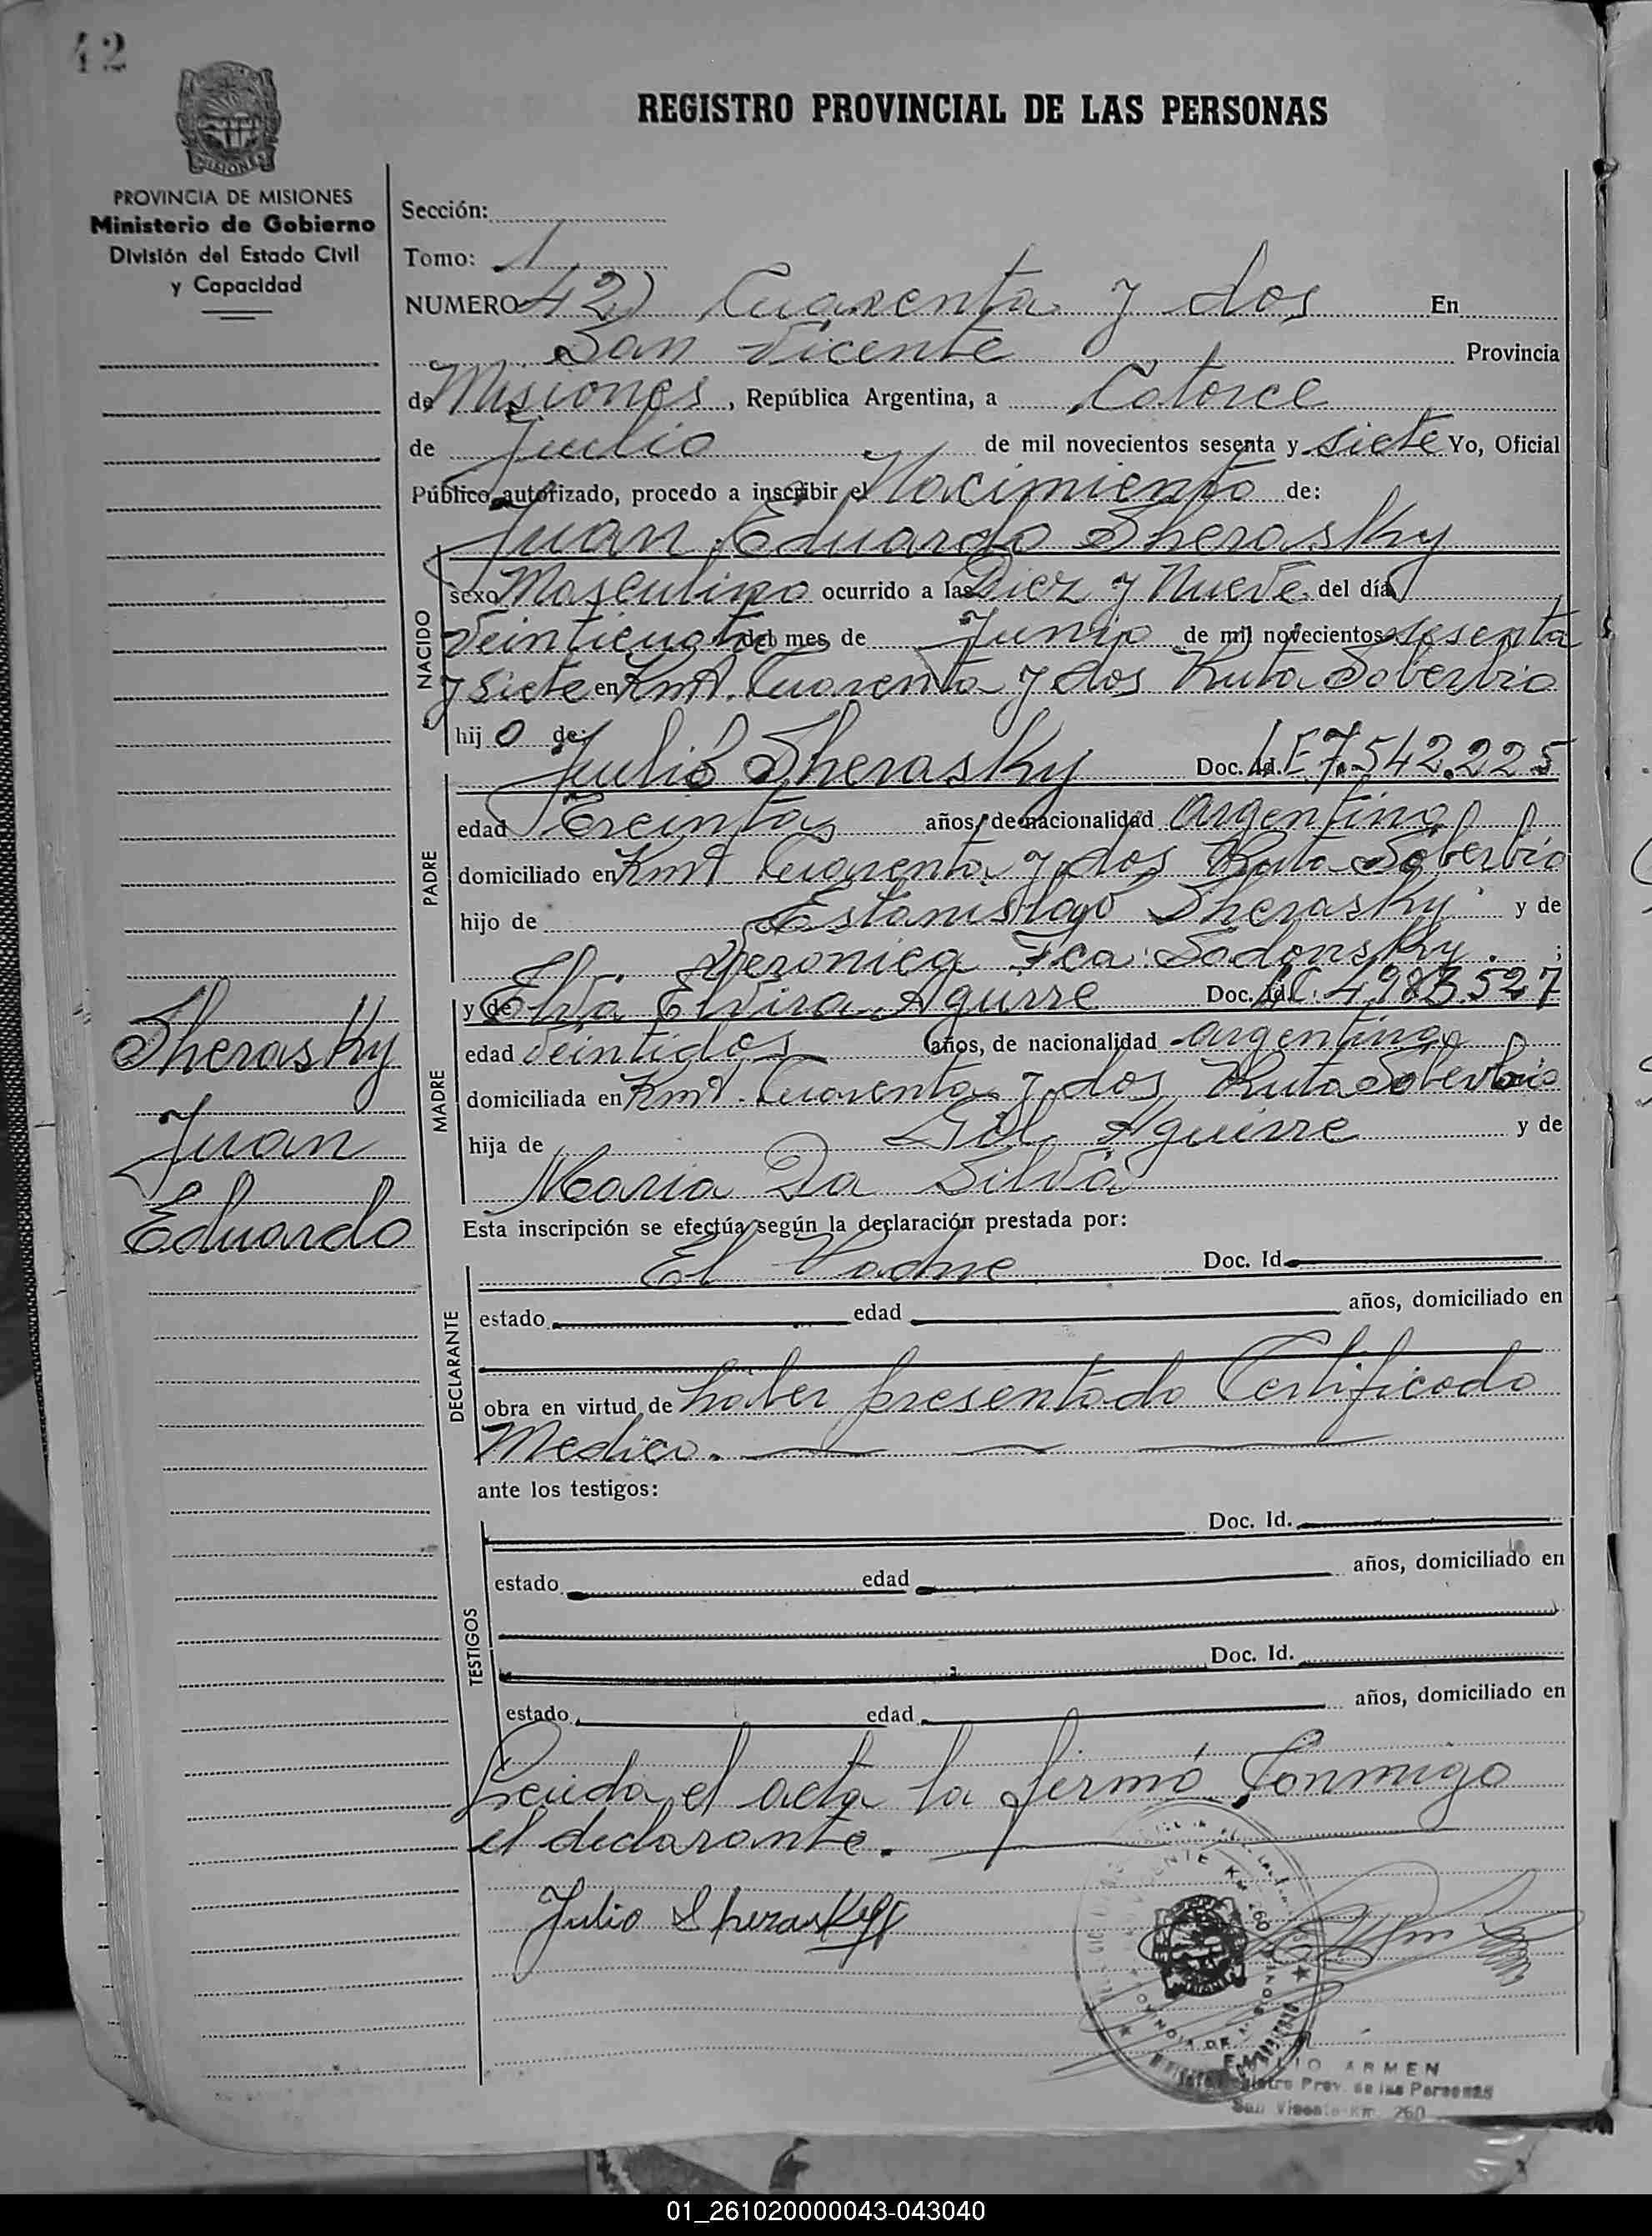 42
REGISTRO PROVINCIAL DE LAS PERSONAS
MISIONES
PROVINCIA DE MISIONES
Ministerio de Gobierno
División del Estado Civil
y Capacidad
Sección:
Tomo: 1
NUMERO 42) Cuarenta y dos En
San Vicente Provincia
de Misiones, República Argentina, a Catorce
de Julio de mil novecientos sesenta y siete Yo, Oficial
Público autorizado, procedo a inscribir el Nacimiento de:
Juan Eduardo Sherasky
NACIDO
sexo Masculino ocurrido a las Diez y Nueve del día
Veinticuatro del mes de Junio de mil novecientos sesenta
y siete en Kmt. Cuarenta y dos Ruta Soberbio
hijo de:
Julio Sherasky Doc. Id. LE 7.542.225
PADRE
edad Treinta años, de nacionalidad Argentina
domiciliado en Kmt Cuarenta y dos Ruta Soberbio
hijo de Estanislao Sherasky y de
Veronica Fca: Sadonsky. ;
y de Elva Elvira Agurre Doc. Id. LC. 527
MADRE
edad Veintidos años, de nacionalidad argentina
domiciliada en Kmt. Cuarenta y dos Ruta Soberbio
hija de Gil Aguirre y de
Maria Da Silva
Sherasky
Juan
Eduardo
Esta inscripción se efectúa según la declaración prestada por:
El Padre Doc. Id.
DECLARANTE
estado edad años, domiciliado en
obra en virtud de haber presentado Certificado
Medico.
ante los testigos:
Doc. Id.
TESTIGOS
estado edad años, domiciliado en
Doc. Id.
estado edad años, domiciliado en
Leida el acta la firmó Conmigo
el declarante.
Julio Sherasky
ARMEN
Registro Prov. de las Personas
San Vicente Km. 260
01_261020000043-043040